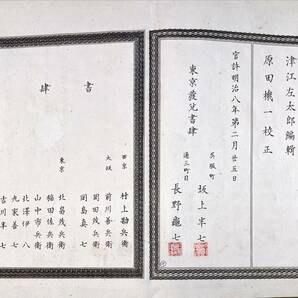 津江左太郎編輯
原田機一校正
官許明治八年第二月廿五日
東京發兌書肆
呉服町
坂上半七
通三町目
長野龜七
書肆
西京
村上勘兵衛
大坂
前川善兵衛
岡田茂兵衛
岡島真七
東京
北畠茂兵衛
稲田佐兵衛
山中市兵衛
北澤伊八
九家善七
吉川半七